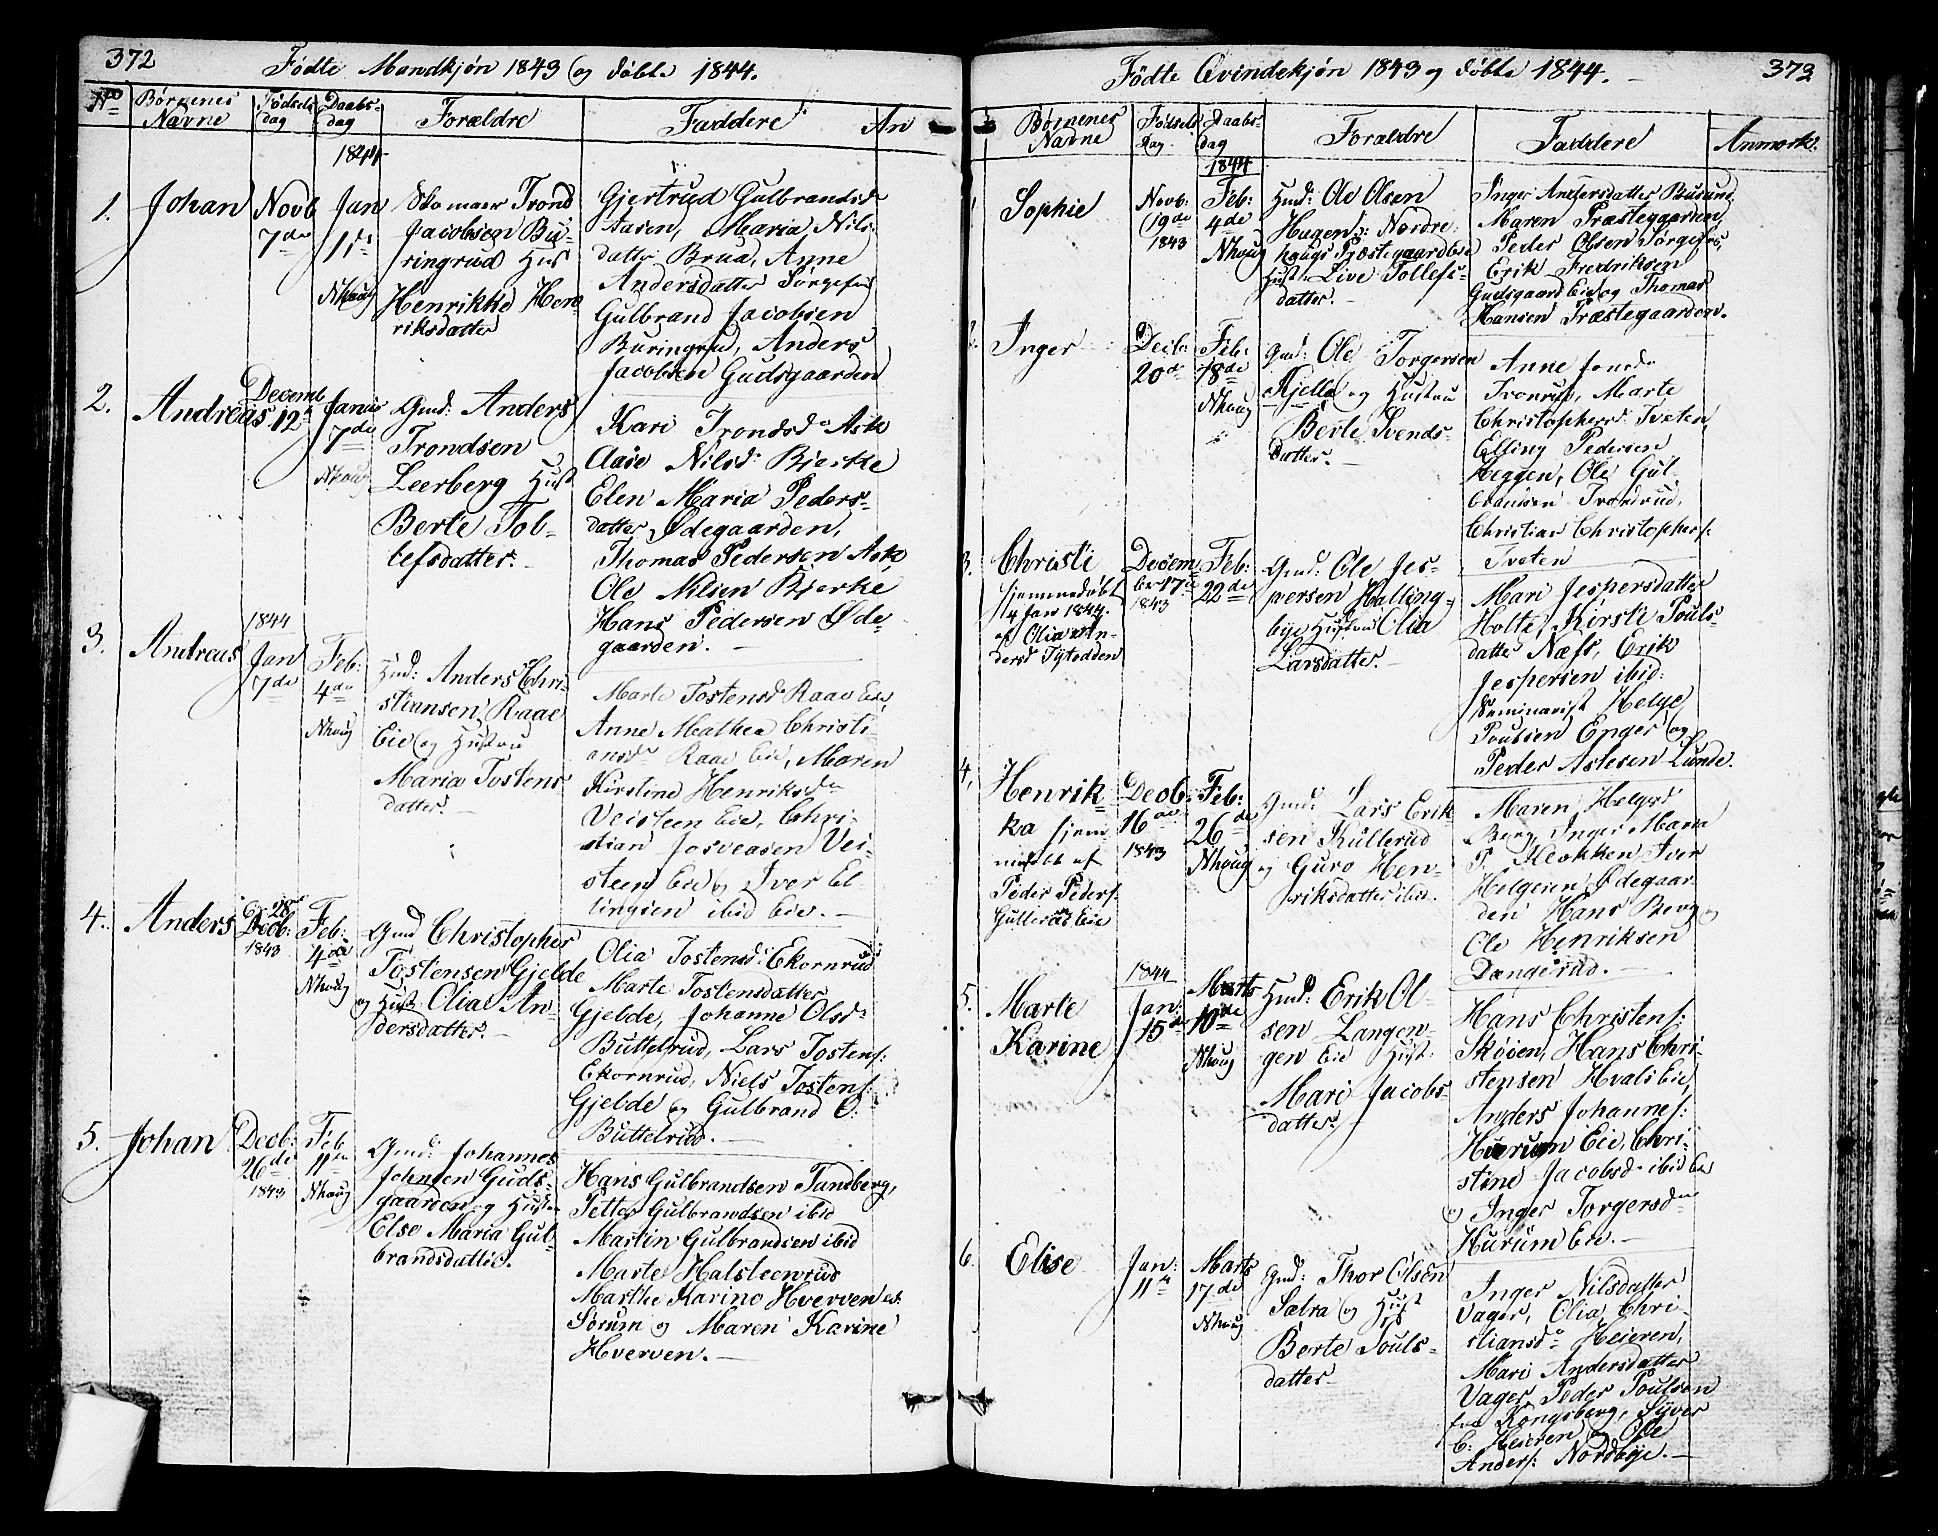 372
Födte Mandkjön 1843 og döbte 1844.
No
Børnenes Navne
Födsels dag
Daabs- dag
Forældre
Faddere
An
1844
1. Johan
Novb 7de
Jan 11te
Nhoug
Skomager Trond
Jacobsen Bu-
ringrud Hust
Henrikke Hen-
riksdatter
Gjertrud Gulbrandsd
Aasen, Maria Nils-
datter Brua, Anne
Andersdatter Sørgefos
Gulbrand Jacobsen
Buringrud, Anders
Jacobsen Gudsgaarden
2. Andreas
Decemb 12te
Januar 7de
Nhoug
Gmd: Anders
Trondsen
Leerberg Hust
Berte Tol-
lefsdatter.
Kari Trondsd Ask
Aase Nilsd: Bjerke
Elen Maria Peders-
datter Ødegaarden,
Thomas Pedersen Ask
Ole Nilsen Bjerke
Hans Pedersen Øde-
gaarden. —
3. Andreas
1844
Jan 7de
Feb: 4de
Nhoug
Hmd: Anders Chri-
stiansen Raae
Eie og Hustru
Maria Tostens
datter.
Marte Tostensd Raae Eie,
Anne Mathea Christi-
ansd Raae Eie, Maren
Kirstine Henriksdr
Veisteen Eie, Chri-
stian Vei-
steen Eie og Iver El-
lingsen ibid Eie. —
4. Anders
28
Decb: 1843
Feb: 4de
Nhoug
Gmd Christopher
Tostensen Gjelde
og Hust: Olia An-
dersdatter. —
Olia Tostensd: Ekornrud
Marte Tostensdatter
Gjelde, Johanne Olsd
Buttelrud, Lars Tostens:
Ekornrud, Niels Tostens:
Gjelde og Gulbrand O:
Buttelrud. —
5. Johan
Decb: 26de 1843
Feb 11te
Nhoug
Gmd: Johannes
Johnsen Guds-
gaarden og Hustru
Else Maria Gul-
brandsdatter.
Hans Gulbrandsen Tandberg,
Petter Gulbrandsen ibid
Martin Gulbrandsen ibid
Marte Halsteenrud
Marthe Karine Hverven es:
Sørum og Maren Karine
Hverven. —
373
Födte Qvindekjön 1843 og döbte 1844. —
Børnenes Navne
Födsels Dag
Daabs- dag
Forældre
Faddere
Anmerk:
1844
1 Sophie
Novb: 19de 1843
Feb: 4de
Nhoug
Hmd: Ole Olsen
Hagen p: Nordre-
hougs Præstegaard Eie
Hust: Live Tollefs-
datter. —
Inger Andersdatter Busund
Maren Præstegaarden
Peder Olsen Sørgefos,
Erik Fredriksen
Gudsgaard Eie og Thomas
Hansen Præstegaarden.
2. Inger
Decb: 20de
Feb: 18de
Nhoug
Gmd: Ole Torgersen
Kjelle og Hustru
Berte Svends-
datter. —
Anne
Marte
Christophersd Tveten
Elling Pedersen
Heggen, Ole Gul-
brandsen
Christian Christophers:
Tveten
3. Christi
hjemmedøbt
14 Jan 1844.
af Olia An-
dersd
Decem-
ber 17de 1843
Feb: 22de
Gmd: Ole Jes-
persen Halling-
bye Hustru Olia
Larsdatter. —
Mari Jespersdatter
Holte, Kirsti Pouls-
datter Næss, Erik
Jespersen ibid:
Seminarist Helge
Poulsen Enger og
Peder Astesen Lunde.
4, Henrik-
ka hjem
medøbt af
Peder Peders:
Gullerud Eie
Decb: 16de 1843
Feb: 26de
Nhoug
Gmd: Lars Erik-
sen Kullerud
og Guro Hen-
riksdatter ibid.
Maren Helgesd
Berg Inger Maria
P. Klokken, Iver
Helgesen Ødegaar-
den Hans Berg og
Ole Henriksen
Dangerud. —
5. Marte
Karine
1844
Jan: 15de
Marts 10de
Nhoug
Hmd: Erik Ol-
sen Langen-
gen Eie Hust:
Mari Jacobs-
datter.
Hans Christens:
Skøien, Hans Chri-
stensen Hvals Eie,
Anders Johannes:
Hurum Eie, Chri-
stine Jacobsd ibid Eie
og Inger Torgersdr
Hurum Eie. —
6. Elise
Jan: 11te
Marts 17de
Nhoug
Gmd: Thor Olsen
Sætra og Hust
Berte Pouls-
datter
Inger Nilsdatter
Vager, Olia Chri-
stiansd Heieren,
Mari Andersdatter
Vager, Peder Poulsen
fra Kongsberg, Syver
C: Heieren og Ole
Anders: Nordbye. —